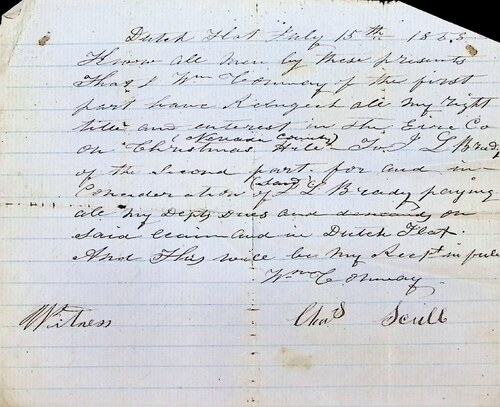 Dutch Flat July 15th 1858
Know all men by these presents
That I Wm Conway of the first
part have Relinqued all my right
title and interest in the Erie Co
on "Christmas Hill" (Nevada County) To J L Bready
of the Second part for and in
Consideration of (Said) J L Bready paying
all my Depts Dues and demands on
Said Claim and in Dutch Flat.
And This will be my Recept in full
Wm Conway
Witness Chas Scull